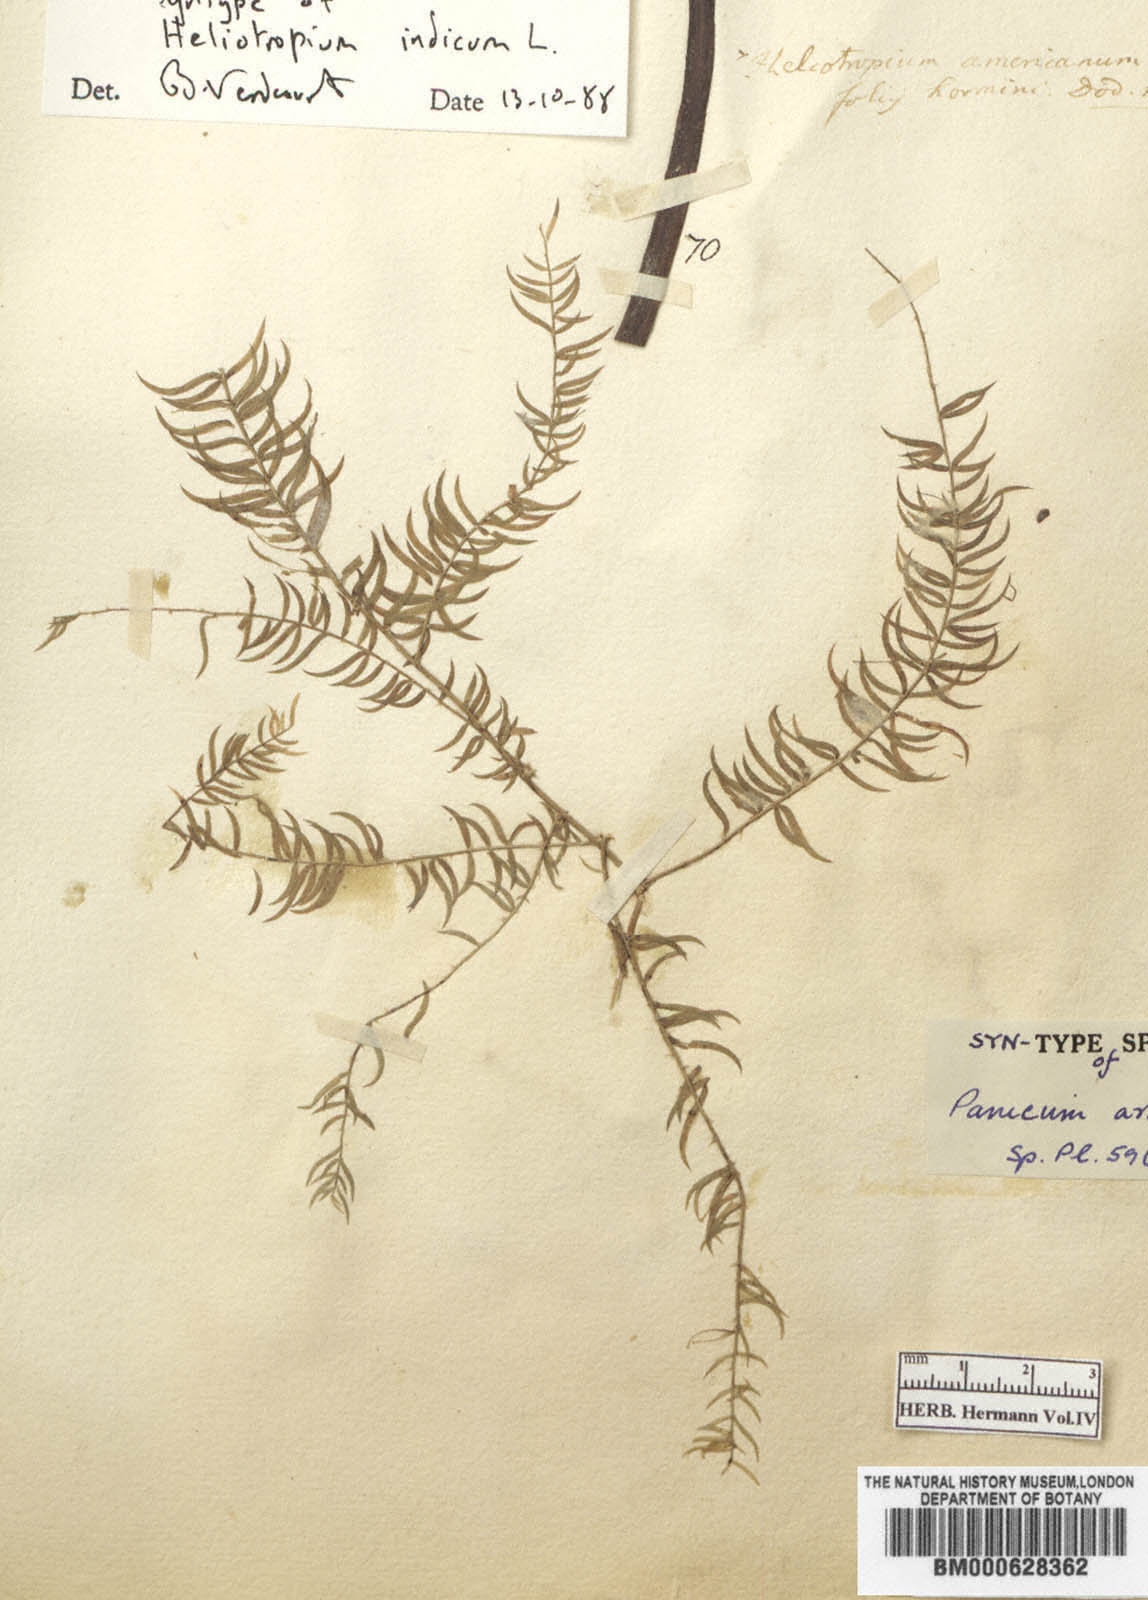 Heliotropium indicum L.
Det. B. Verdcourt Date 13-10-88
Heliotropium americanum
folijs hormini. Dod.
70
SYN-TYPE SP
of
Panicum ar
Sp. Pl. 59
mm 1 2 3
HERB. Hermann Vol.IV
THE NATURAL HISTORY MUSEUM,LONDON
DEPARTMENT OF BOTANY
BM000628362